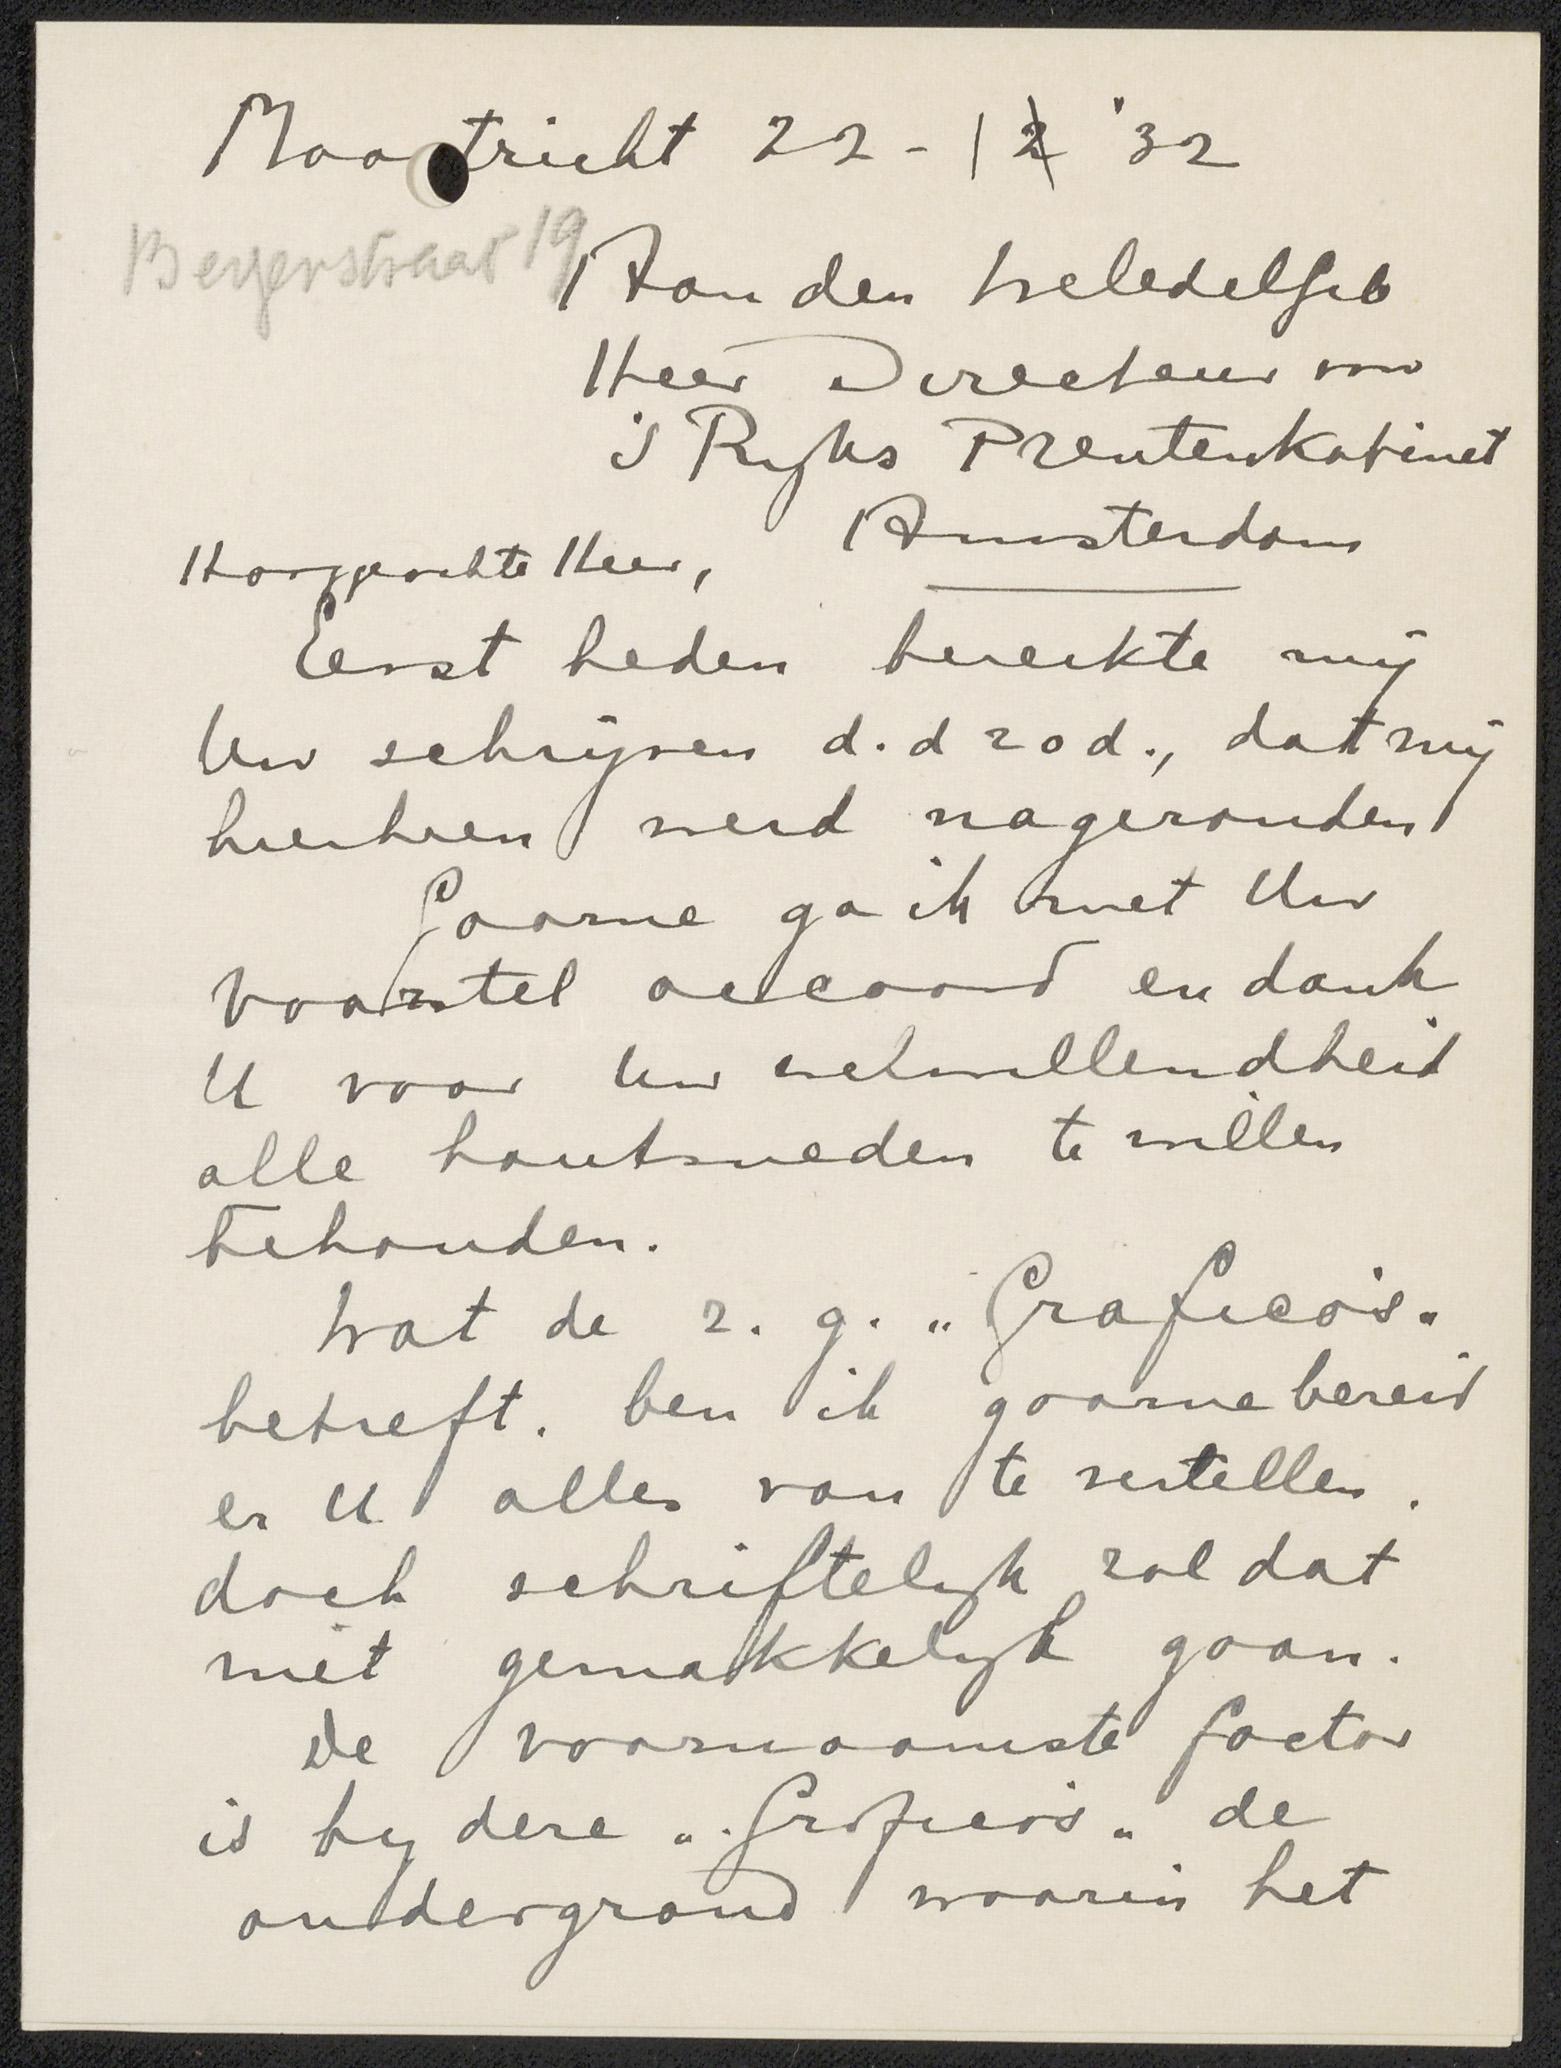 Maastricht 22-1 '32
Beyerstraat 19
Aan den WelEdelGeb
Heer Directeur van
's Ryks Prentenkabinet
Amsterdam
Hooggeachte Heer,
Eerst heden bereikte mij
Uw schrijven d.d 20 d., dat mij
hierheen werd nagezonden
Gaarne ga ik met Uw
voorstel accoord en dank
U voor Uw welwillendheid
alle houtsneden te willen
behouden.
Wat de z.g. „Grafico's"
betreft. ben ik gaarne bereid
er U alles van te vertellen.
doch schriftelyk zal dat
niet gemakkelyk gaan.
De voornaamste factor
is by deze „Grafico's" de
ondergrond waarin het